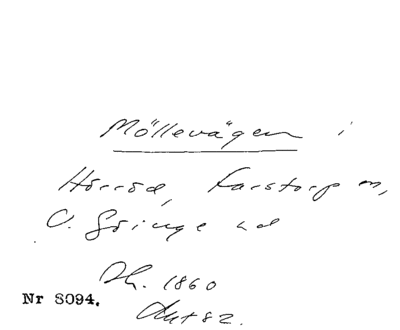 Möllevägen i
Hörröd, Farstorp sn,
V. Göinge hd
Dh. 1860
Nr S094.
Akt 82.